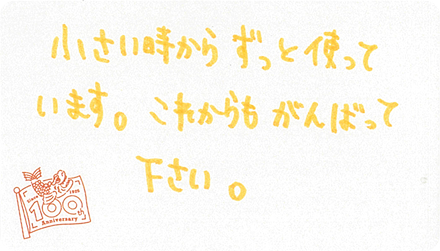 小さい時からずっと使って
います。これからもがんばって
下さい。
Since 1925
100th
Anniversary